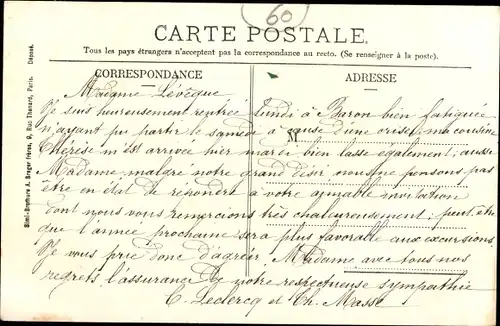 60
CARTE POSTALE
Tous les pays étrangers n'acceptent pas la correspondance au recto. (Se renseigner à la poste).
CORRESPONDANCE
ADRESSE
M
Simi-Bromure A. Breger frères, 9, Rue Thénard, Paris. Déposé.
Madame Lévêque
Je suis heureusement rentrée lundi à Baron bien fatiguée
n'ayant pu partir le samedi à cause d'une crise, ma cousine
Thérèse n'est arrivée hier mardi bien lasse également; aussi
Madame, malgré notre grand désir nous ne pensons pas
être en état de répondre à votre aimable invitation
dont nous vous remercions très chaleureusement; peut-être
que l'année prochaine sera plus favorable aux excursions.
Je vous prie donc d'agréer, Madame avec tous nos
regrets l'assurance de notre respectueuse sympathie
C. Leclercq et Th. Masse